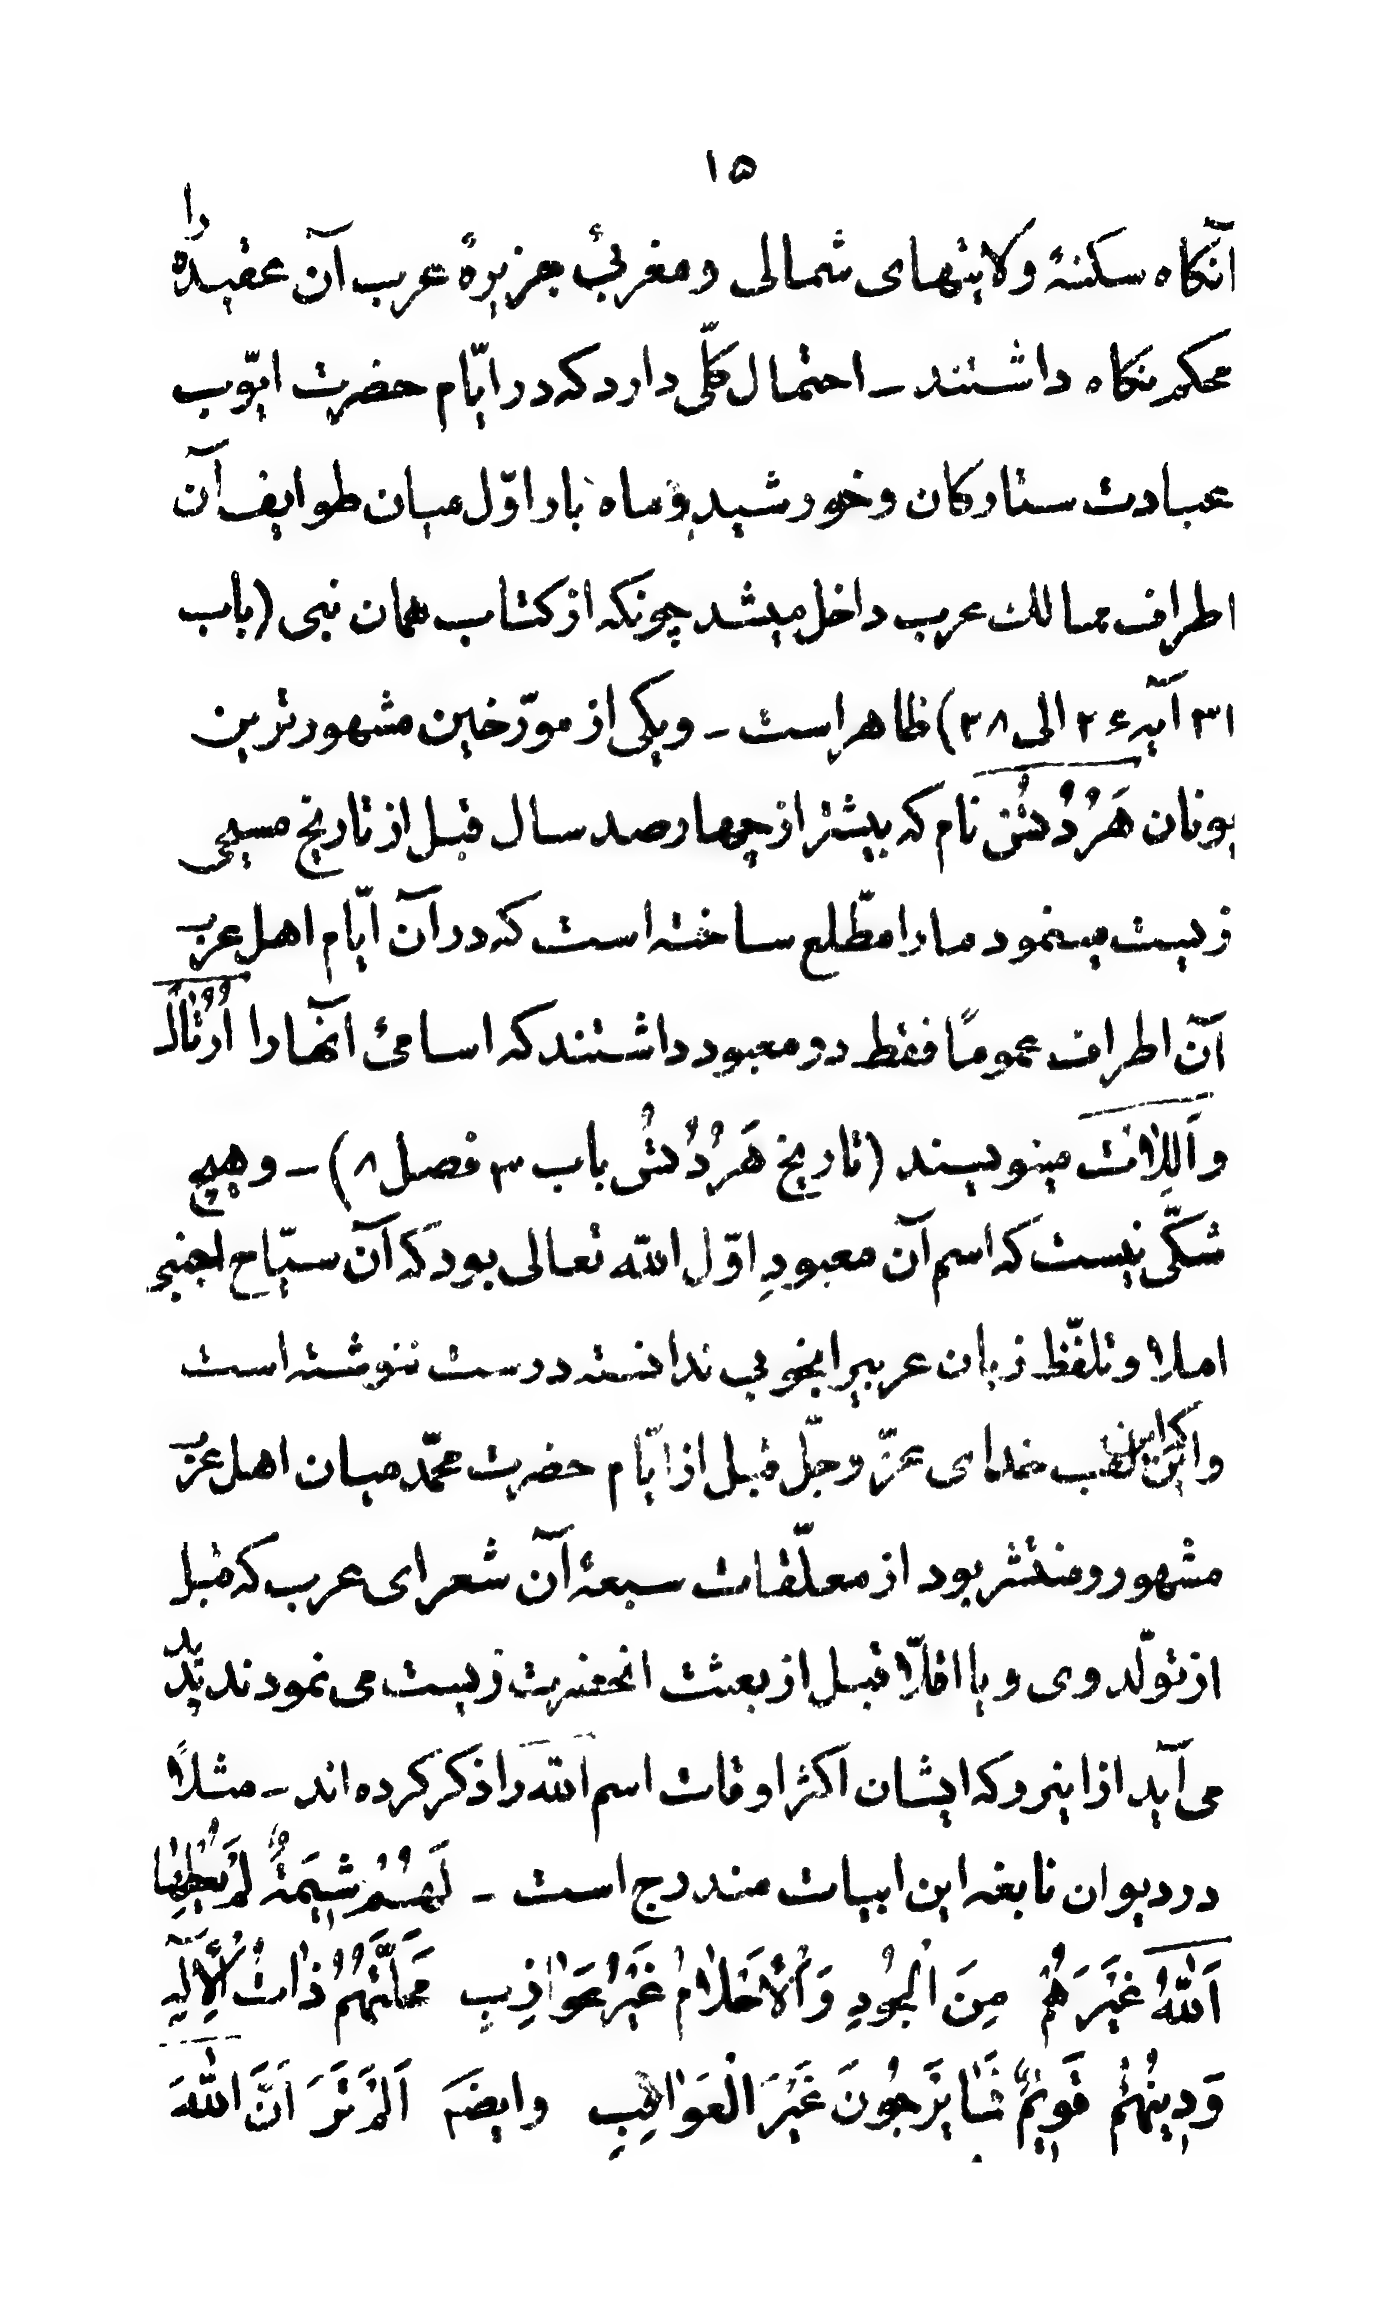 ۱۵
آنکاه سکنهٔ ولایتهای شمالی ومغربیٔ جزیرهٔ عرب آن عقیده را
محکم نکاه داشتند ـ احتمال کلّی دارد که در ایّام حضرت ایّوب
عبادت ستارکان وخورشید وماه بار اوّل میان طوایف آن
اطراف ممالک عرب داخل میشد چونکه از کتاب همان نبی (باب
۳۱ آیهٔ ۲۶ الی ۲۸) ظاهر است ـ ویکی از مورّخین مشهورترین
یونان هَرُدُتُس نام که بیشتر از چهار صد سال قبل از تاریخ مسیحی
زیست مینمود ما را مطّلع ساخته است که در آن ایّام اهل عرب
آن اطراف عموماً فقط دو معبود داشتند که اسامئ آنها را اُرُتال
واَلِلات مینویسند (تاریخ هَرُدُتُس باب ۳ فصل ۸) ـ وهیچ
شکّی نیست که اسم آن معبودِ اوّل الله تعالی بود که آن سیّاح اجنبی
املا وتلفّظ زبان عربیرا بخوبی ندانسته درست ننوشته است
واکر این لقب خدای عزّ وجلّ قبل از ایّام حضرت محمّد میان اهل عرب
مشهور ومنتشر بود از معلّقات سبعهٔ آن شعرای عرب که قبل
از تولّد وی ویا اقلّا قبل از بعثت آنحضرت زیست می نمودند پدید
می آید از اینرو که ایشان اکثر اوقات اسم الله را ذکر کرده اند ـ مثلاً
در دیوان نابغه این ابیات مندرج است ـ لَهُمُ شِیمَةٌ لَمْ یُعْطِهَا
اَللّٰهُ غَیْرَهُمْ مِنَ الْجُودِ وَالْأَحْلَامُ غَیْرُ عَوَازِبِ مَحَلَّتُهُمْ ذَاتُ الْإِلٰهِ
وَدِینُهُمْ قَوِیمٌ فَمَا یَرْجُونَ غَیْرَ الْعَوَاقِبِ وایضَه اَلَمْ تَرَ اَنَّ اللّٰهَ